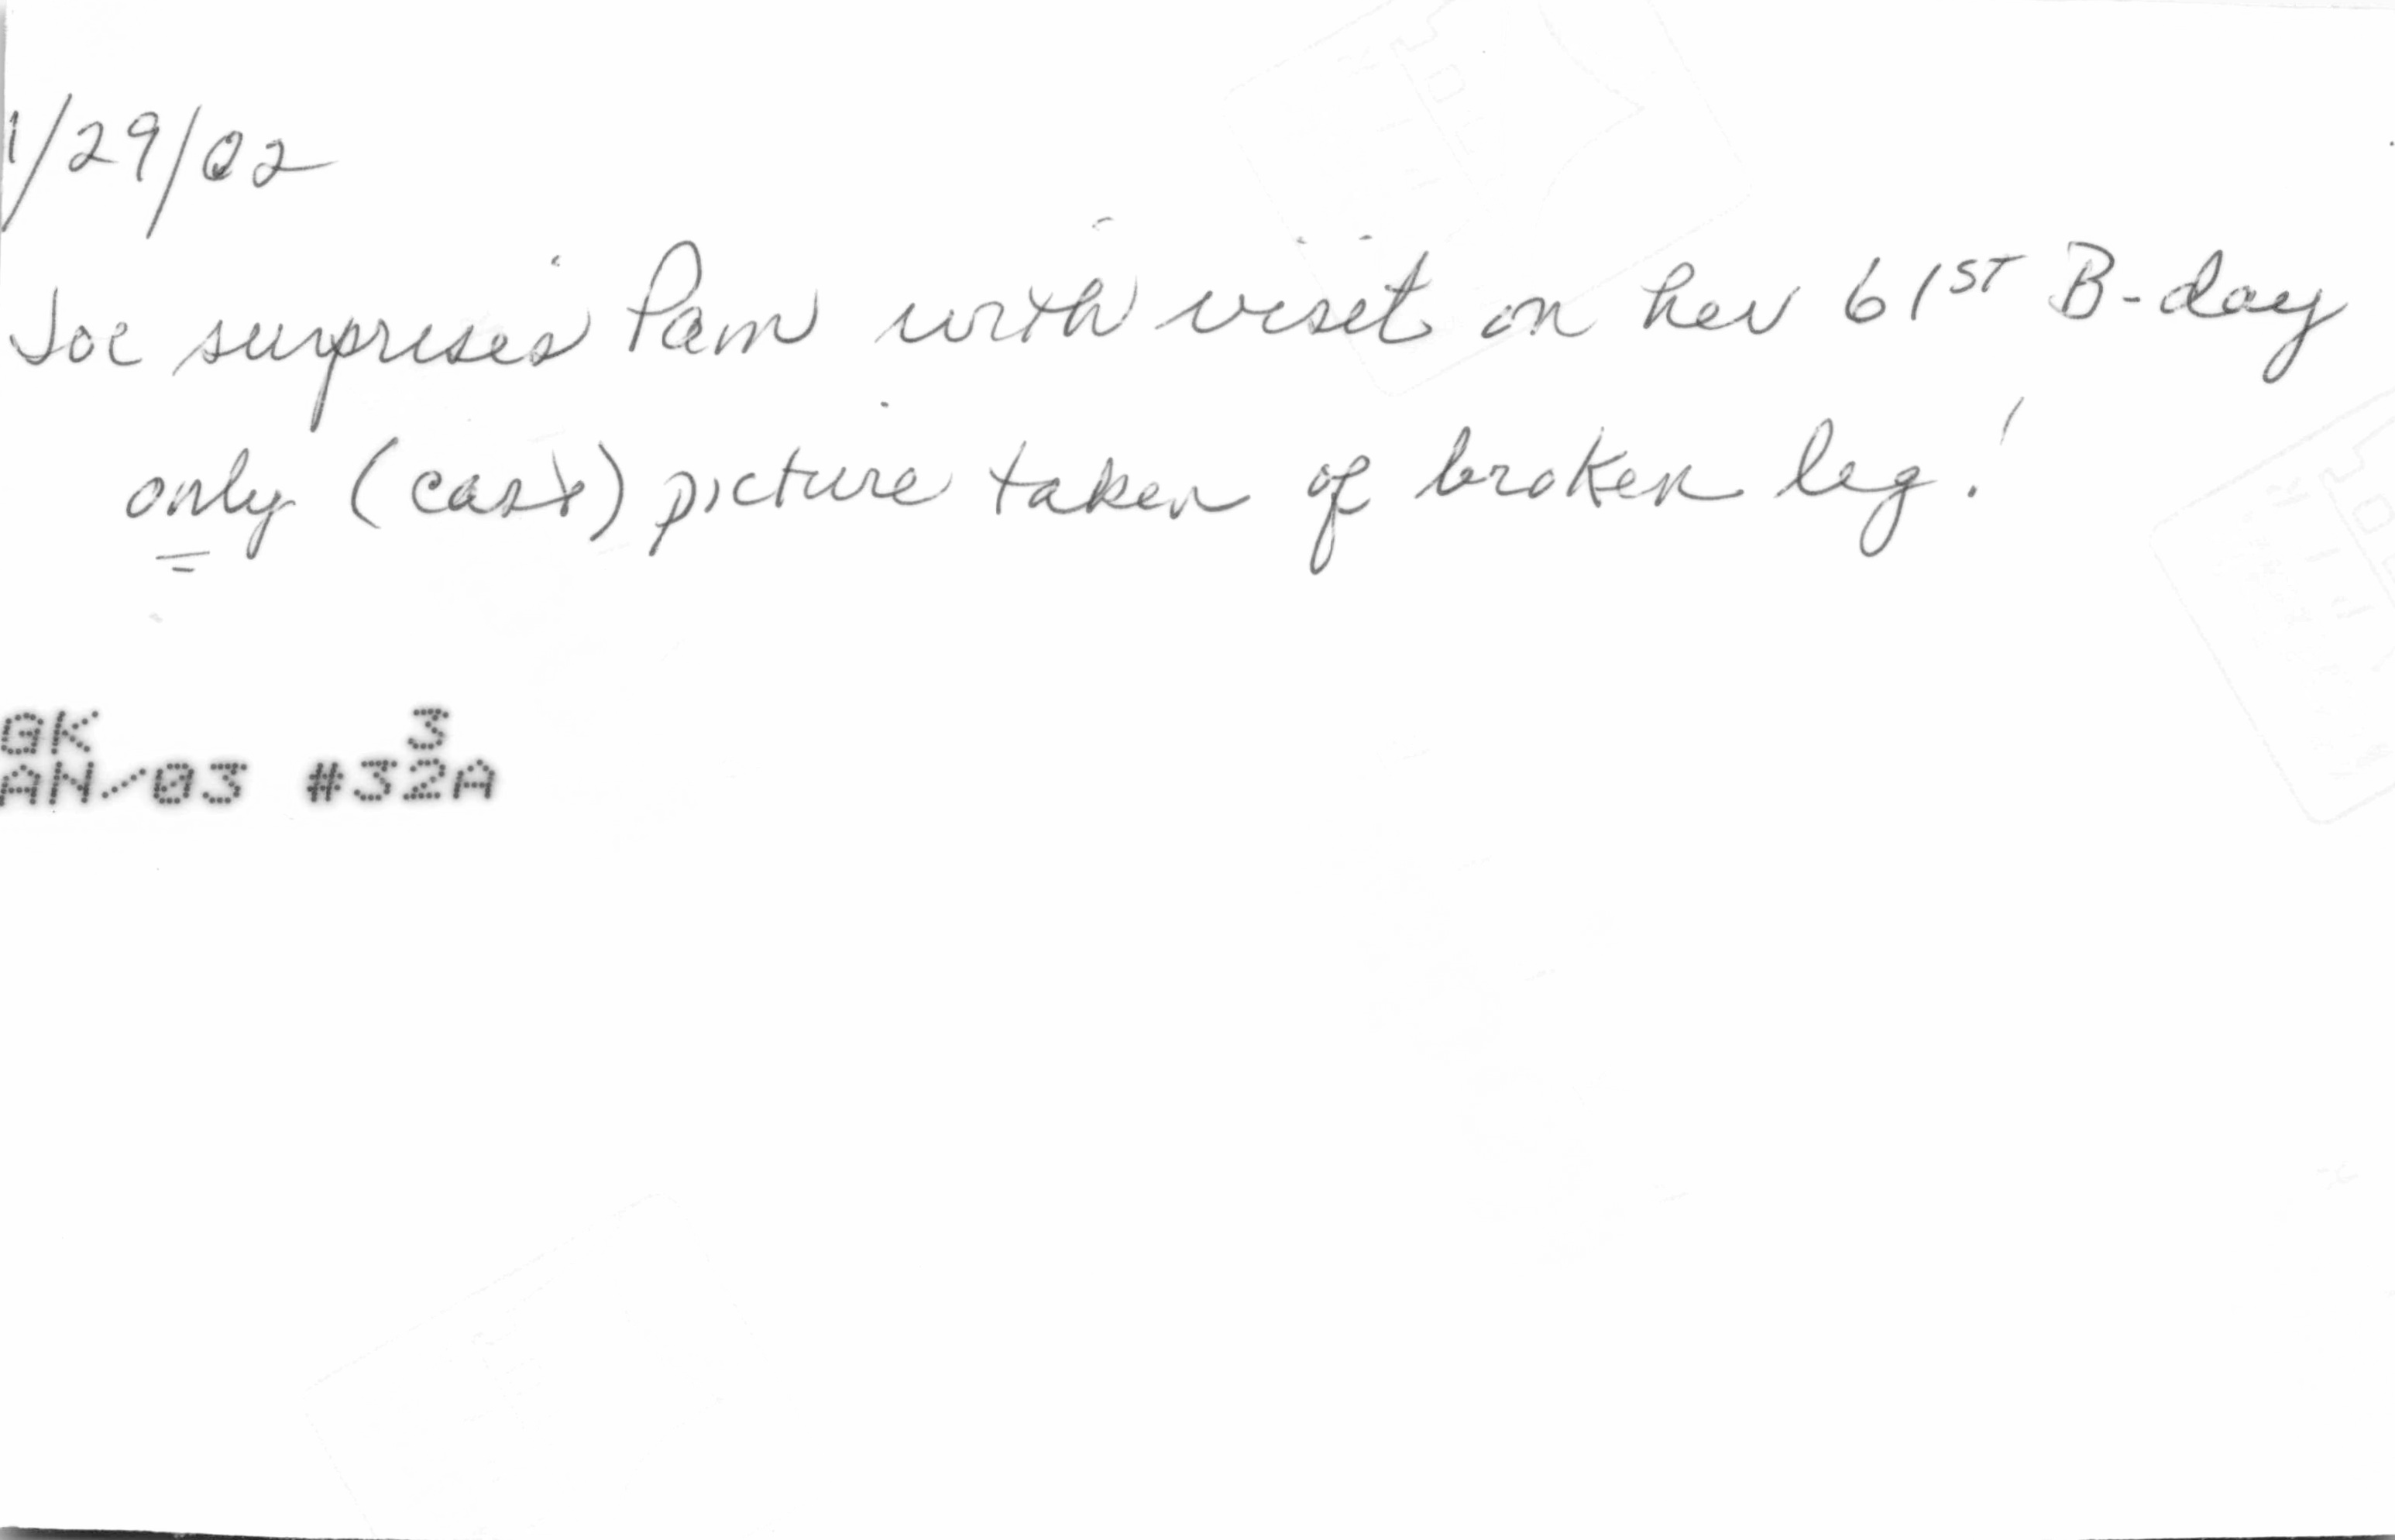 1/29/02
Joe surprises Pam with visit on her 61ST B-day
only (cast) picture taken of broken leg!
3
AN/03 #32A